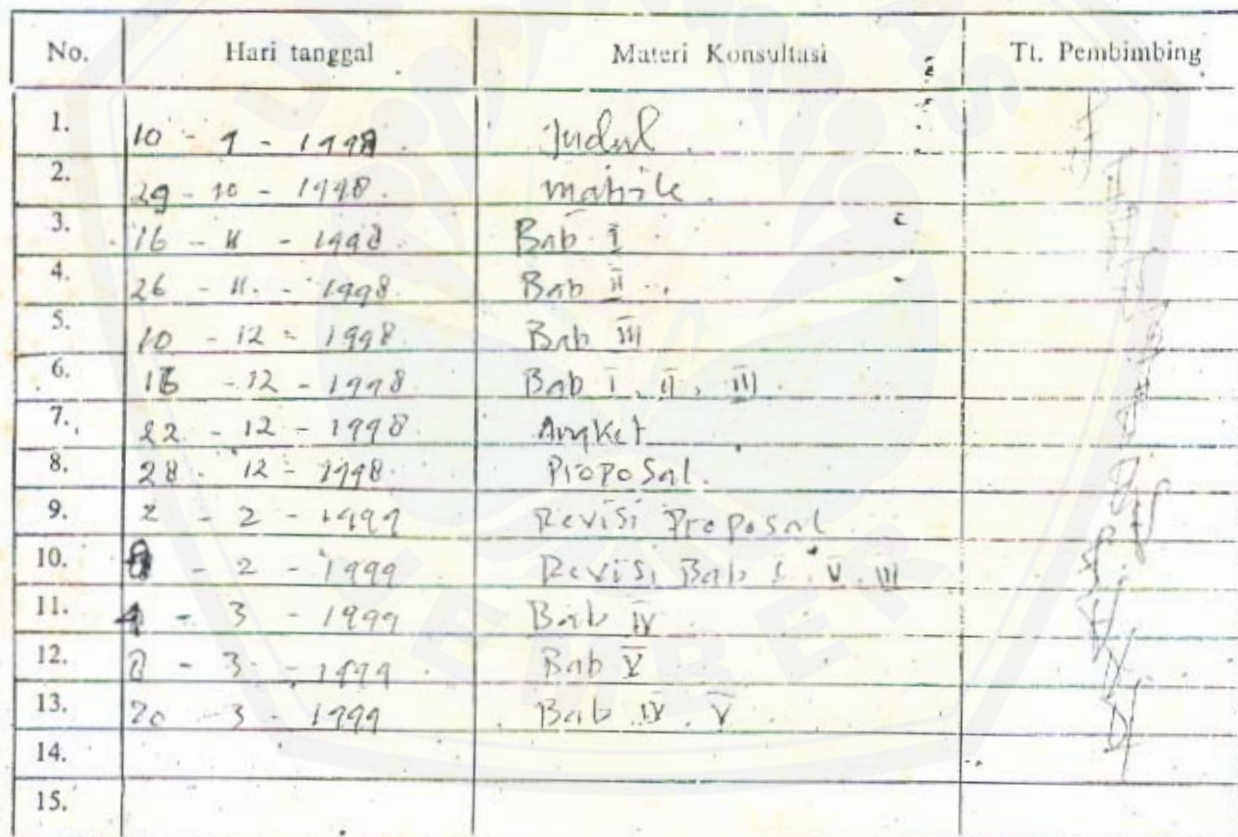 No. Hari tanggal Materi Konsultasi Tt. Pembimbing
1. 10 - 9 - 1998. Judul.
2. 29 - 10 - 1998. matrik.
3. 16 - 11 - 1998. Bab I
4. 26 - 11 - 1998. Bab II
5. 10 - 12 - 1998. Bab III
6. 16 - 12 - 1998 Bab I, II, III.
7. 22 - 12 - 1998. Angket
8. 28 - 12 - 1998. Proposal.
9. 2 - 2 - 1999 Revisi Proposal
10. - 2 - 1999 Revisi Bab I. V. III
11. 4 - 3 - 1999 Bab IV
12. 8 - 3 - 1999 Bab V
13. 20 - 3 - 1999 Bab IV. V
14.
15.
JEMBER